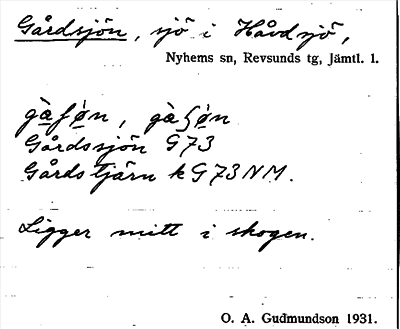 Gårdsjön, sjö i Håvdsjö,
Nyhems sn, Revsunds tg, Jämtl. 1.
Gårdssjön G73
Gårdstjärn k G73NM.
Ligger mitt i skogen.
O. A. Gudmundson 1931.